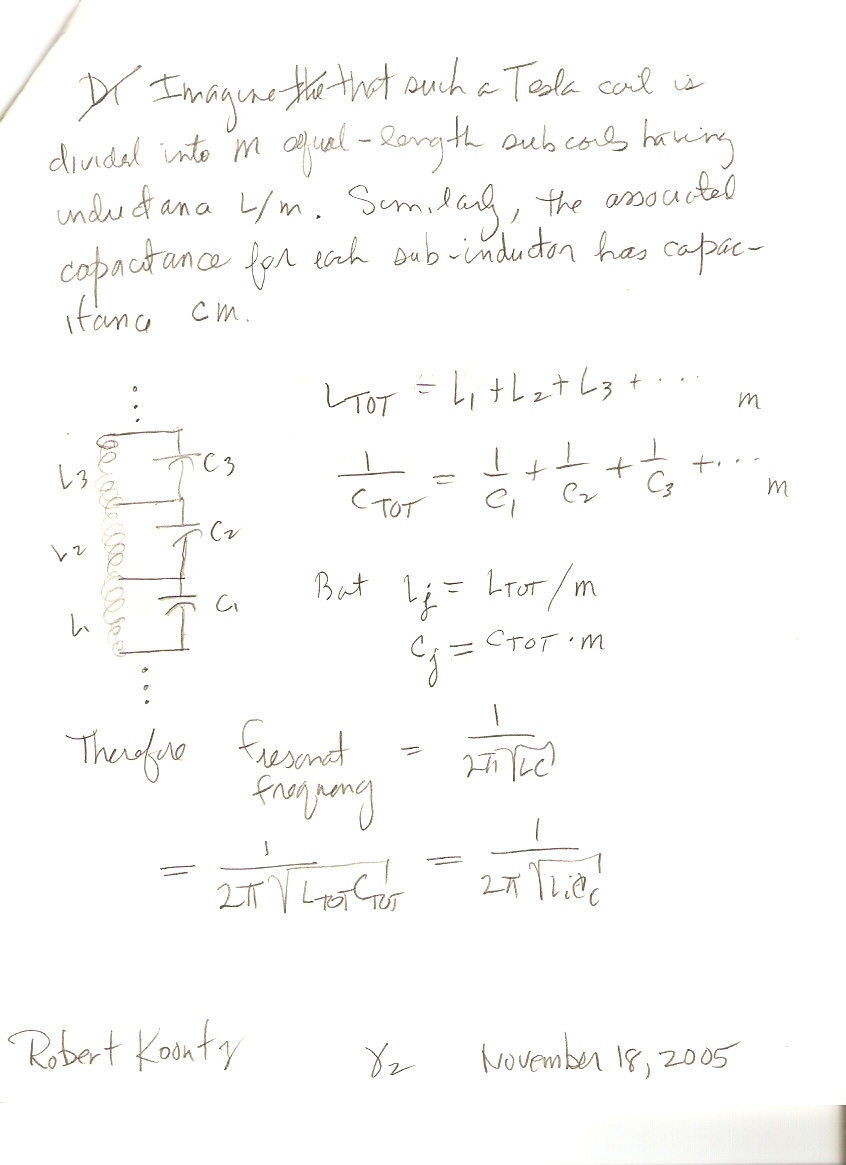 D/ Imagine the that such a Tesla coil is
divided into m equal-length subcoils having
inductance L/m. Similarly, the associated
capacitance for each sub-inductor has capac-
itance cm.
⋮
L_TOT = L1 + L2 + L3 + ··· m
L3 C3
1/C_TOT = 1/C1 + 1/C2 + 1/C3 + ··· m
L2 C2
But Lj = L_TOT/m
L1 C1
Cj = C_TOT · m
⋮
Therefore f resonat frequency = 1/2π√LC
= 1/2π√L_TOT C_TOT = 1/2π√Li Ci
Robert Koontz γ2 November 18, 2005